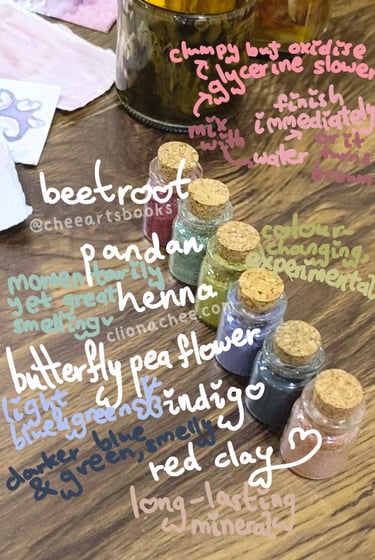 clumpy but oxidise
glycerine slower
mix
with
finish
immediately
water
or it
turns
brown
beetroot
@cheeartsbooks
colour-
changing,
experimental
pandan
momentarily
yet great
smelling
henna
clionachee.com
butterfly pea flower
light
blue & green
indigo
darker blue
& green, smelly
red clay
long-lasting
mineral